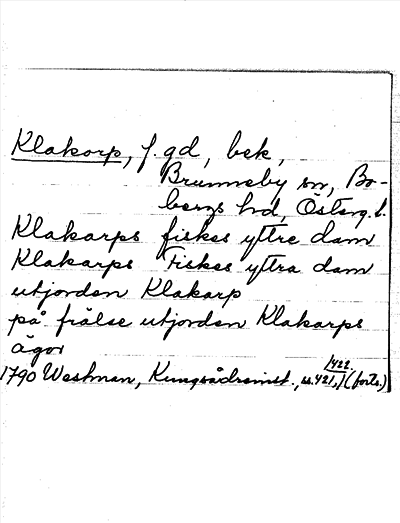 Klakorp, f. gd, bek,
Brunneby sn, Bo-
bergs hd, Österg. l.
Klakarps fiskes yttre dam
Klakarps Fiskes yttra dam
utjorden Klakarp
på frälse utjorden Klakarps
ägor
1422
1790 Westman, Kungsådreinst., ss. 421, (forts.)